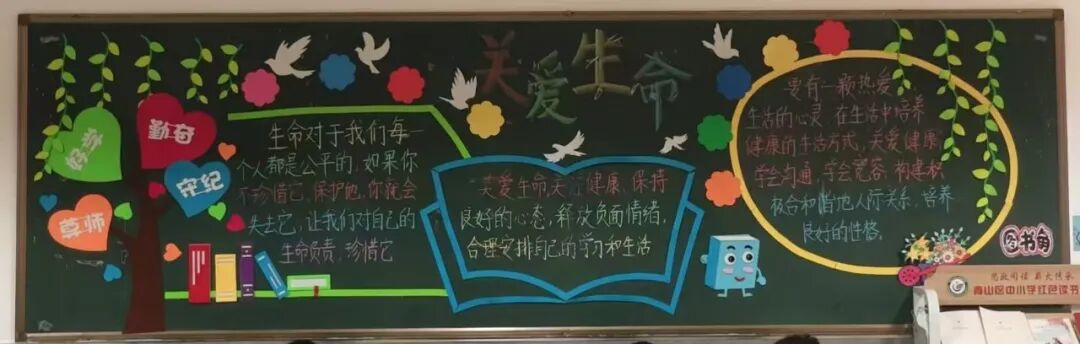 关爱生命
好学
勤奋
守纪
尊师
生命对于我们每一
个人都是公平的,如果你
不珍惜它,保护它,你就会
失去它,让我们对自己的
生命负责,珍惜它
关爱生命关注健康、保持
良好的心态,释放负面情绪,
合理安排自己的学习和生活
要有一颗热爱
生活的心灵 在生活中培养
健康的生活方式,关爱健康
学会沟通,学会宽容、构建积
极合和谐地人际关系,培养
良好的性格。
图书角
青山区中小学红色读书